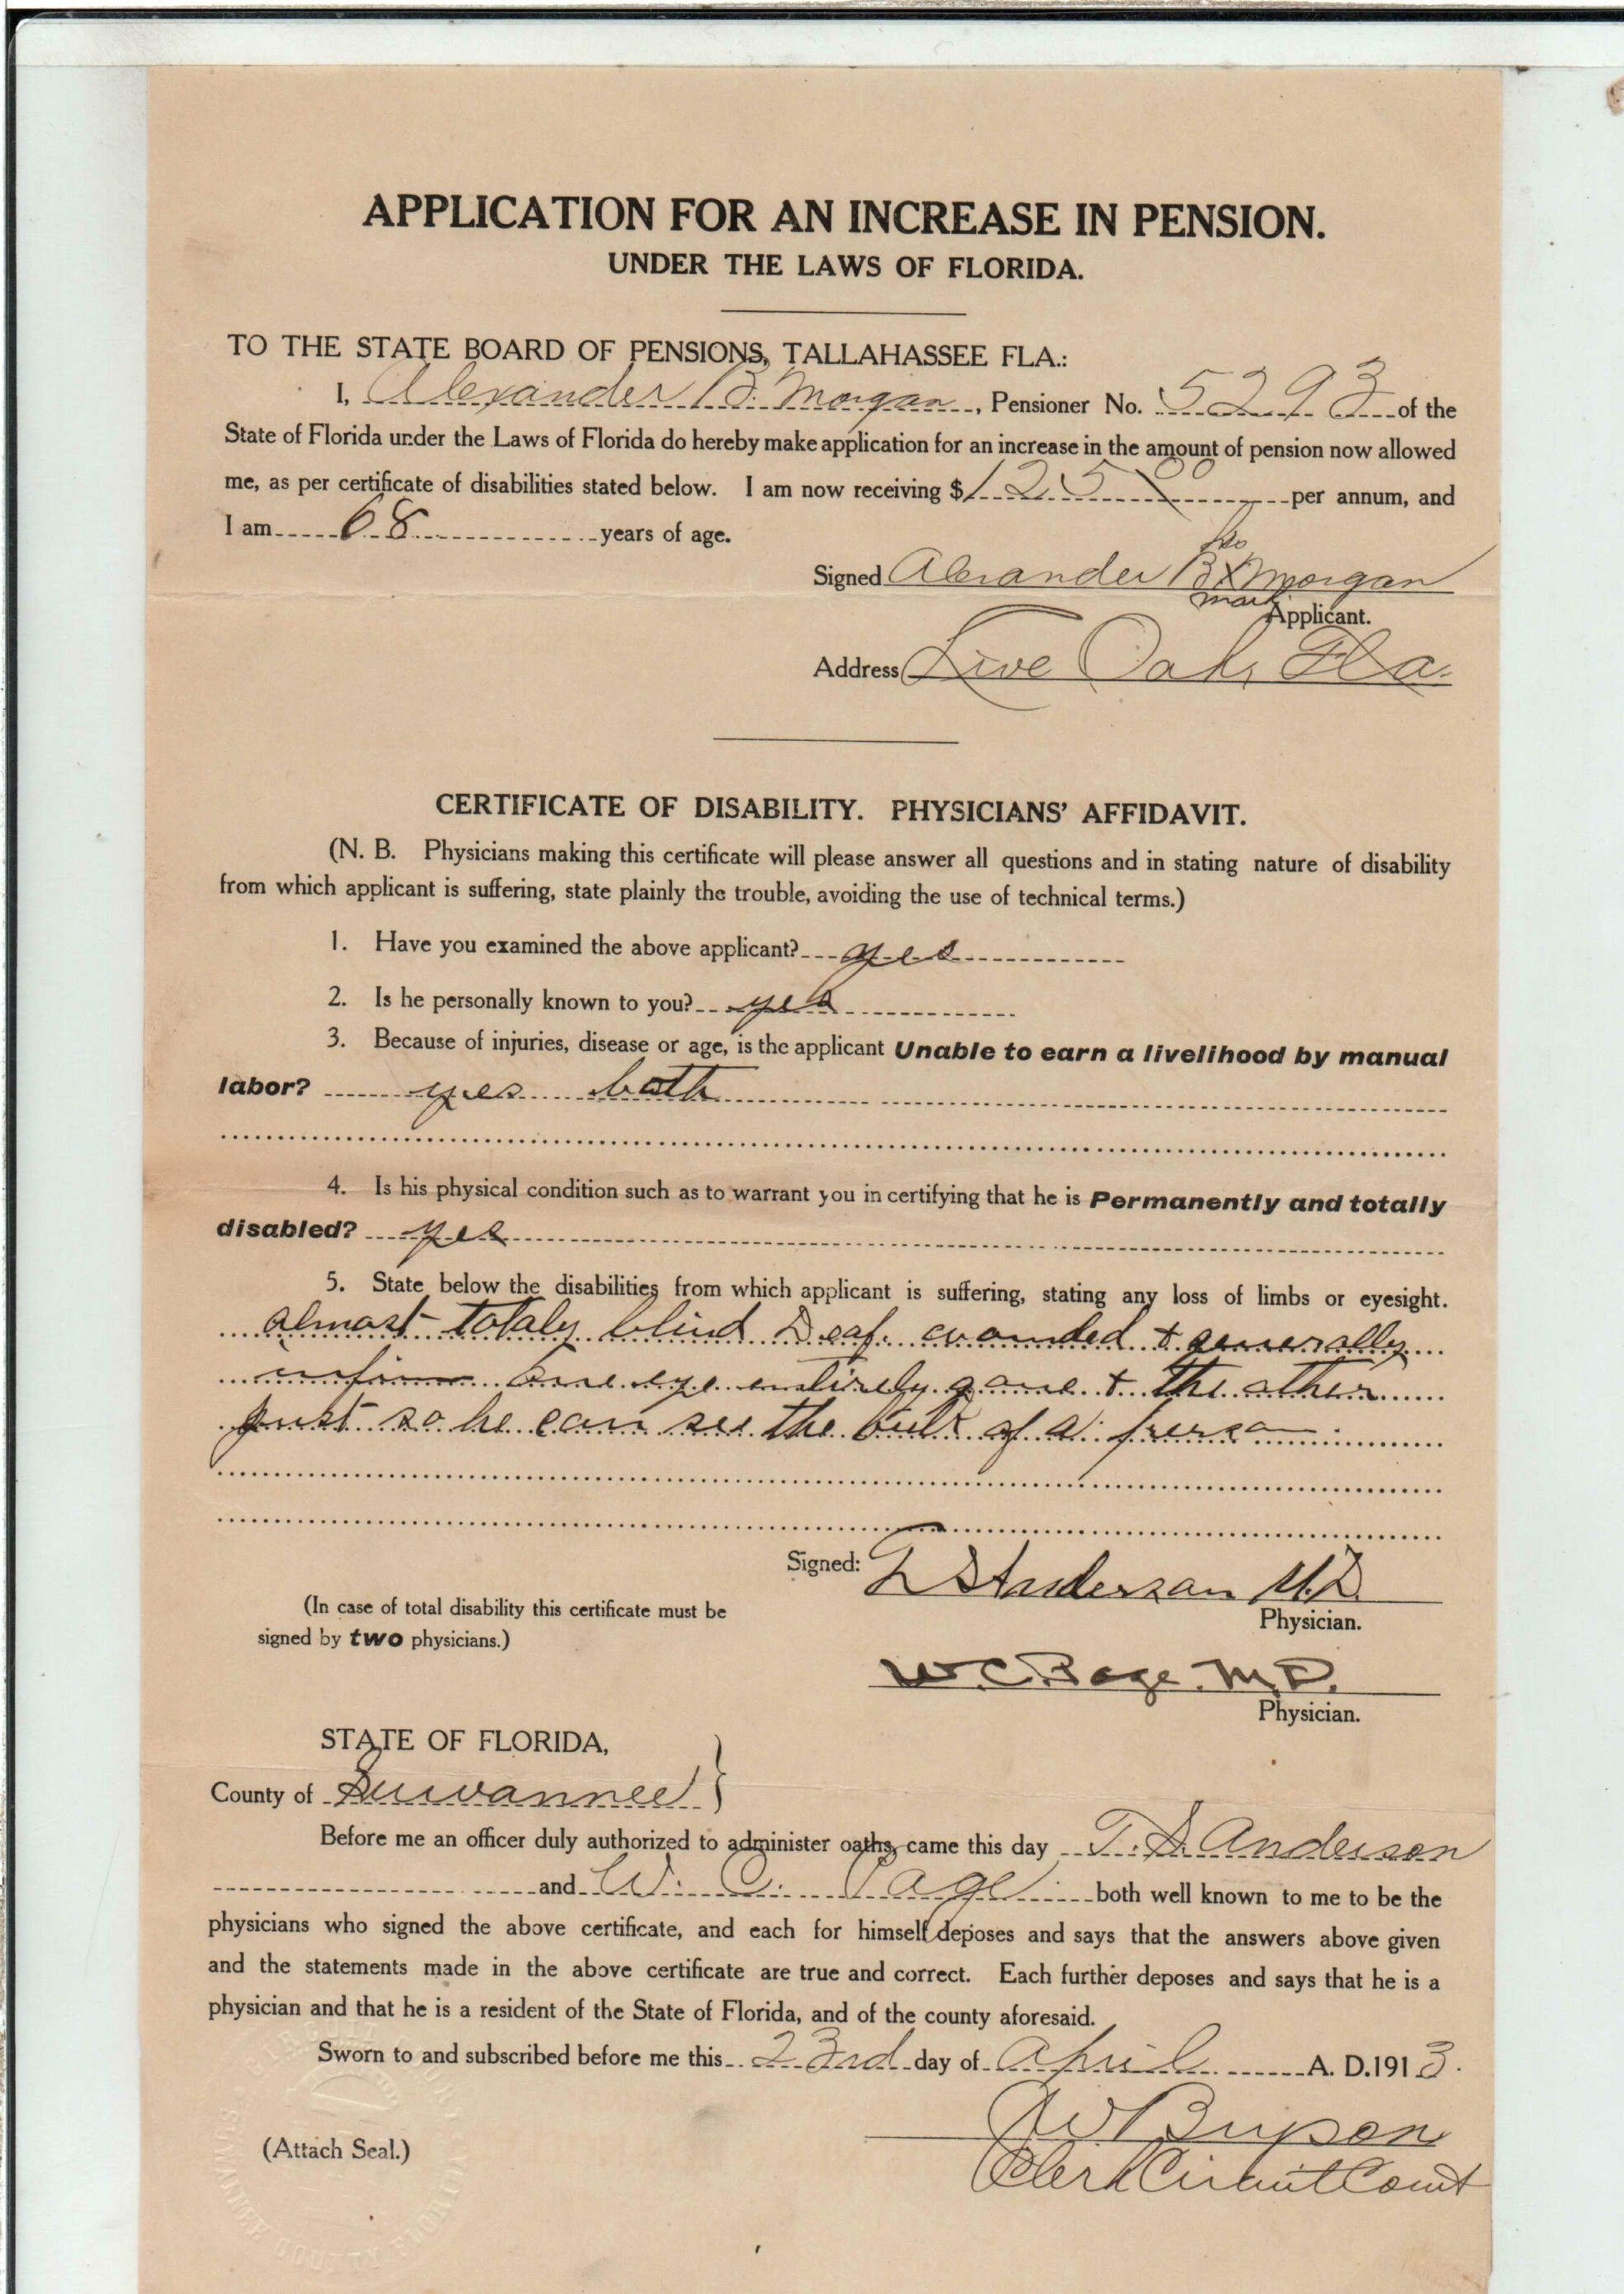 APPLICATION FOR AN INCREASE IN PENSION.
UNDER THE LAWS OF FLORIDA.
TO THE STATE BOARD OF PENSIONS, TALLAHASSEE FLA.:
I, Alexander B. Morgan, Pensioner No. 5293 of the
State of Florida under the Laws of Florida do hereby make application for an increase in the amount of pension now allowed
me, as per certificate of disabilities stated below. I am now receiving $125 00 per annum, and
I am 68 years of age.
his
Signed Alexander B X Morgan
mark
Applicant.
Address Live Oak, Fla.
CERTIFICATE OF DISABILITY. PHYSICIANS' AFFIDAVIT.
(N. B. Physicians making this certificate will please answer all questions and in stating nature of disability
from which applicant is suffering, state plainly the trouble, avoiding the use of technical terms.)
1. Have you examined the above applicant? yes
2. Is he personally known to you? yes
3. Because of injuries, disease or age, is the applicant Unable to earn a livelihood by manual
labor? yes both
4. Is his physical condition such as to warrant you in certifying that he is Permanently and totally
disabled? yes
5. State below the disabilities from which applicant is suffering, stating any loss of limbs or eyesight.
almost totaly blind Deaf. wounded & generally
infirm One eye entirely gone & the other
just so he can see the bulk of a person
Signed: T S Anderson M.D.
Physician.
(In case of total disability this certificate must be
signed by two physicians.)
W. C. Page. M.D.
Physician.
STATE OF FLORIDA,
County of Suwannee }
Before me an officer duly authorized to administer oaths, came this day T. S. Anderson
and W. C. Page both well known to me to be the
physicians who signed the above certificate, and each for himself deposes and says that the answers above given
and the statements made in the above certificate are true and correct. Each further deposes and says that he is a
physician and that he is a resident of the State of Florida, and of the county aforesaid.
Sworn to and subscribed before me this 23rd day of April A. D. 1913.
J W Bryson
Clerk Circuit Court
(Attach Seal.)
SUWANNEE COUNTY FLORIDA